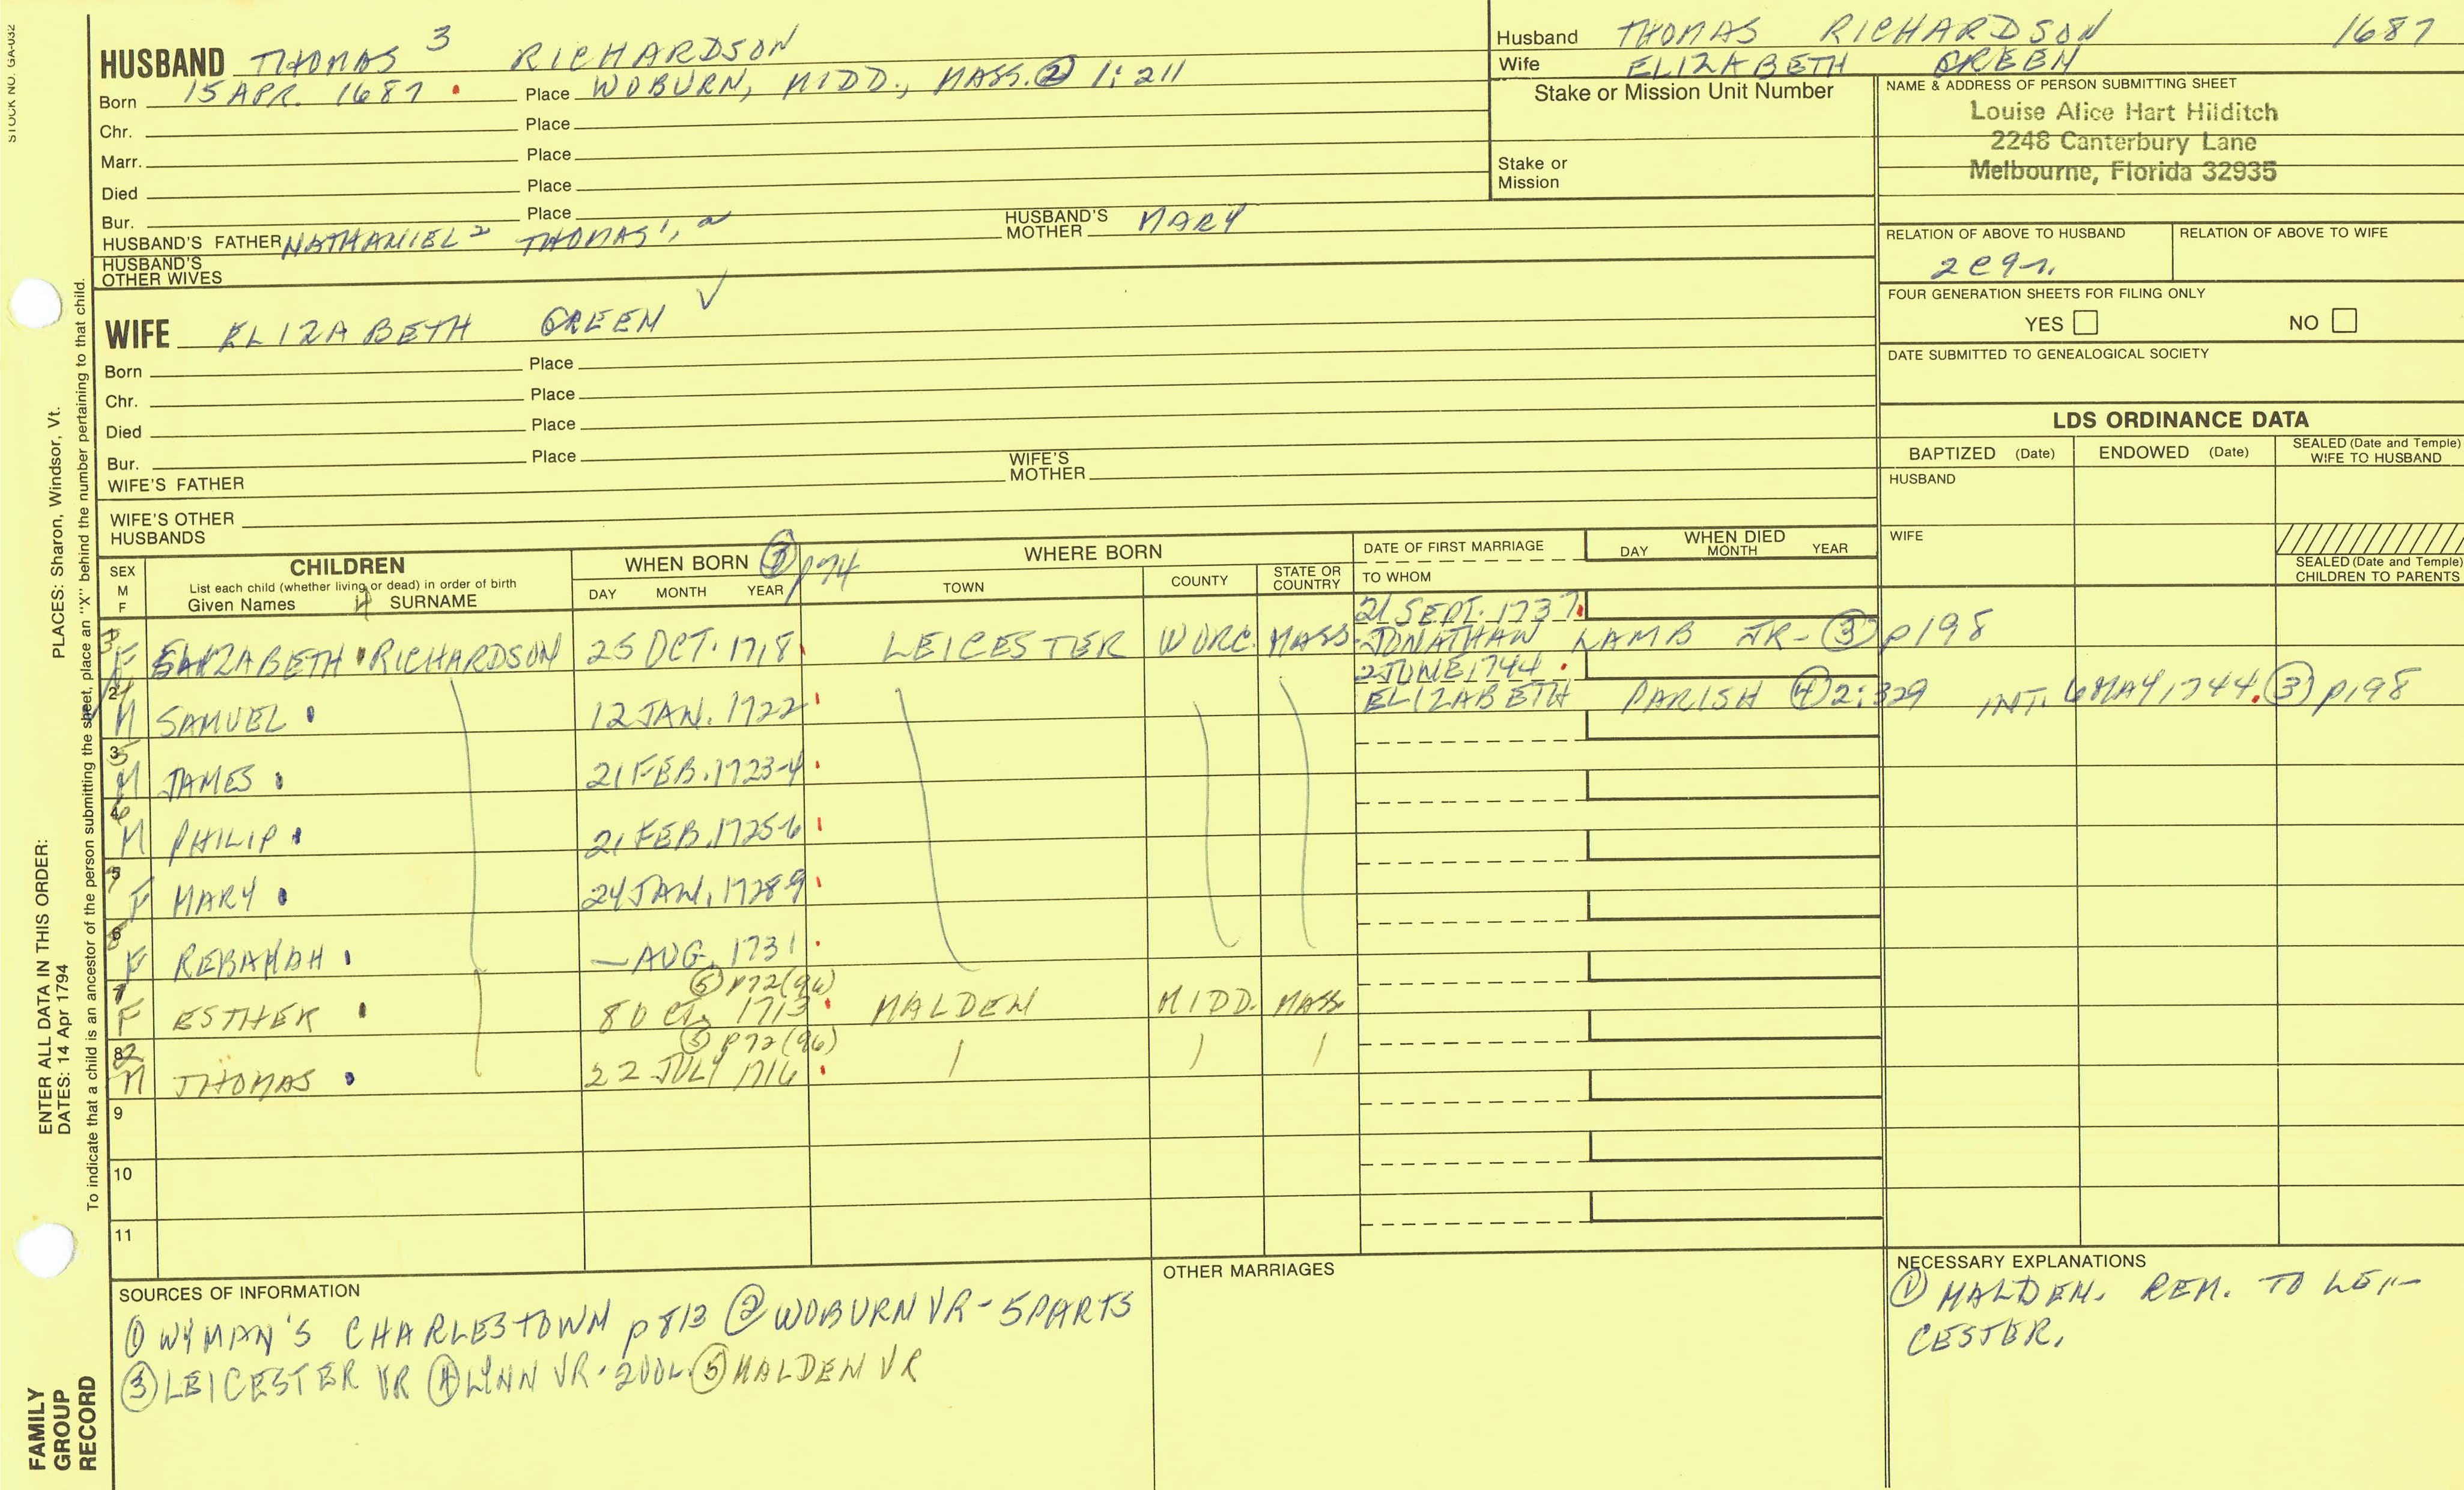 STOCK NO. GA-032
HUSBAND THOMAS 3 RICHARDSON
Born 15 APR. 1687 . Place WOBURN, MIDD., MASS. ② 1:211
Chr. Place
Marr. Place
Died Place
Bur. Place
HUSBAND'S FATHER NATHANIEL 2 THOMAS 1, HUSBAND'S MOTHER MARY
HUSBAND'S OTHER WIVES
WIFE ELIZABETH GREEN ✓
Born Place
Chr. Place
Died Place
Bur. Place
WIFE'S FATHER WIFE'S MOTHER
WIFE'S OTHER HUSBANDS
Husband THOMAS RICHARDSON 1687
Wife ELIZABETH GREEN
Stake or Mission Unit Number
Stake or Mission
NAME & ADDRESS OF PERSON SUBMITTING SHEET
Louise Alice Hart Hilditch
2248 Canterbury Lane
Melbourne, Florida 32935
RELATION OF ABOVE TO HUSBAND RELATION OF ABOVE TO WIFE
FOUR GENERATION SHEETS FOR FILING ONLY
YES NO
DATE SUBMITTED TO GENEALOGICAL SOCIETY
LDS ORDINANCE DATA
BAPTIZED (Date) ENDOWED (Date) SEALED (Date and Temple) WIFE TO HUSBAND
HUSBAND
WIFE
SEALED (Date and Temple) CHILDREN TO PARENTS
SEX M F
CHILDREN
List each child (whether living or dead) in order of birth
Given Names 4 SURNAME
WHEN BORN ③ p74
DAY MONTH YEAR
WHERE BORN
TOWN COUNTY STATE OR COUNTRY
DATE OF FIRST MARRIAGE
TO WHOM
WHEN DIED
DAY MONTH YEAR
21 SEPT. 1737
1 3 F ELIZABETH RICHARDSON 25 OCT. 1718 LEICESTER WORC. MASS. JONATHAN LAMB JR- ③ p198
2 JUNE 1744
2 4 M SAMUEL 12 JAN. 1722 ELIZABETH PARISH ④ 2:329 INT. 6 MAY 1744. ③ p198
3 5 M JAMES 21 FEB. 1723-4
4 6 M PHILIP 21 FEB. 1725-6
5 7 F MARY 24 JAN. 1728-9
6 8 F — AUG. 1731
⑤ p72 (96)
7 1 F ESTHER 8 OCT. 1713 MALDEN MIDD. MASS.
⑤ p72 (96)
8 2 M THOMAS 22 JULY 1716
9
10
11
SOURCES OF INFORMATION
① WYMAN'S CHARLESTOWN p 813 ② WOBURN VR - 5 PARTS
③ LEICESTER VR ④ LYNN VR - 2 VOL. ⑤ MALDEN VR
OTHER MARRIAGES
NECESSARY EXPLANATIONS
① MALDEN. REM. TO LEI-
CESTER.
ENTER ALL DATA IN THIS ORDER:
DATES: 14 Apr 1794 PLACES: Sharon, Windsor, Vt.
To indicate that a child is an ancestor of the person submitting the sheet, place an "X" behind the number pertaining to that child.
FAMILY
GROUP
RECORD